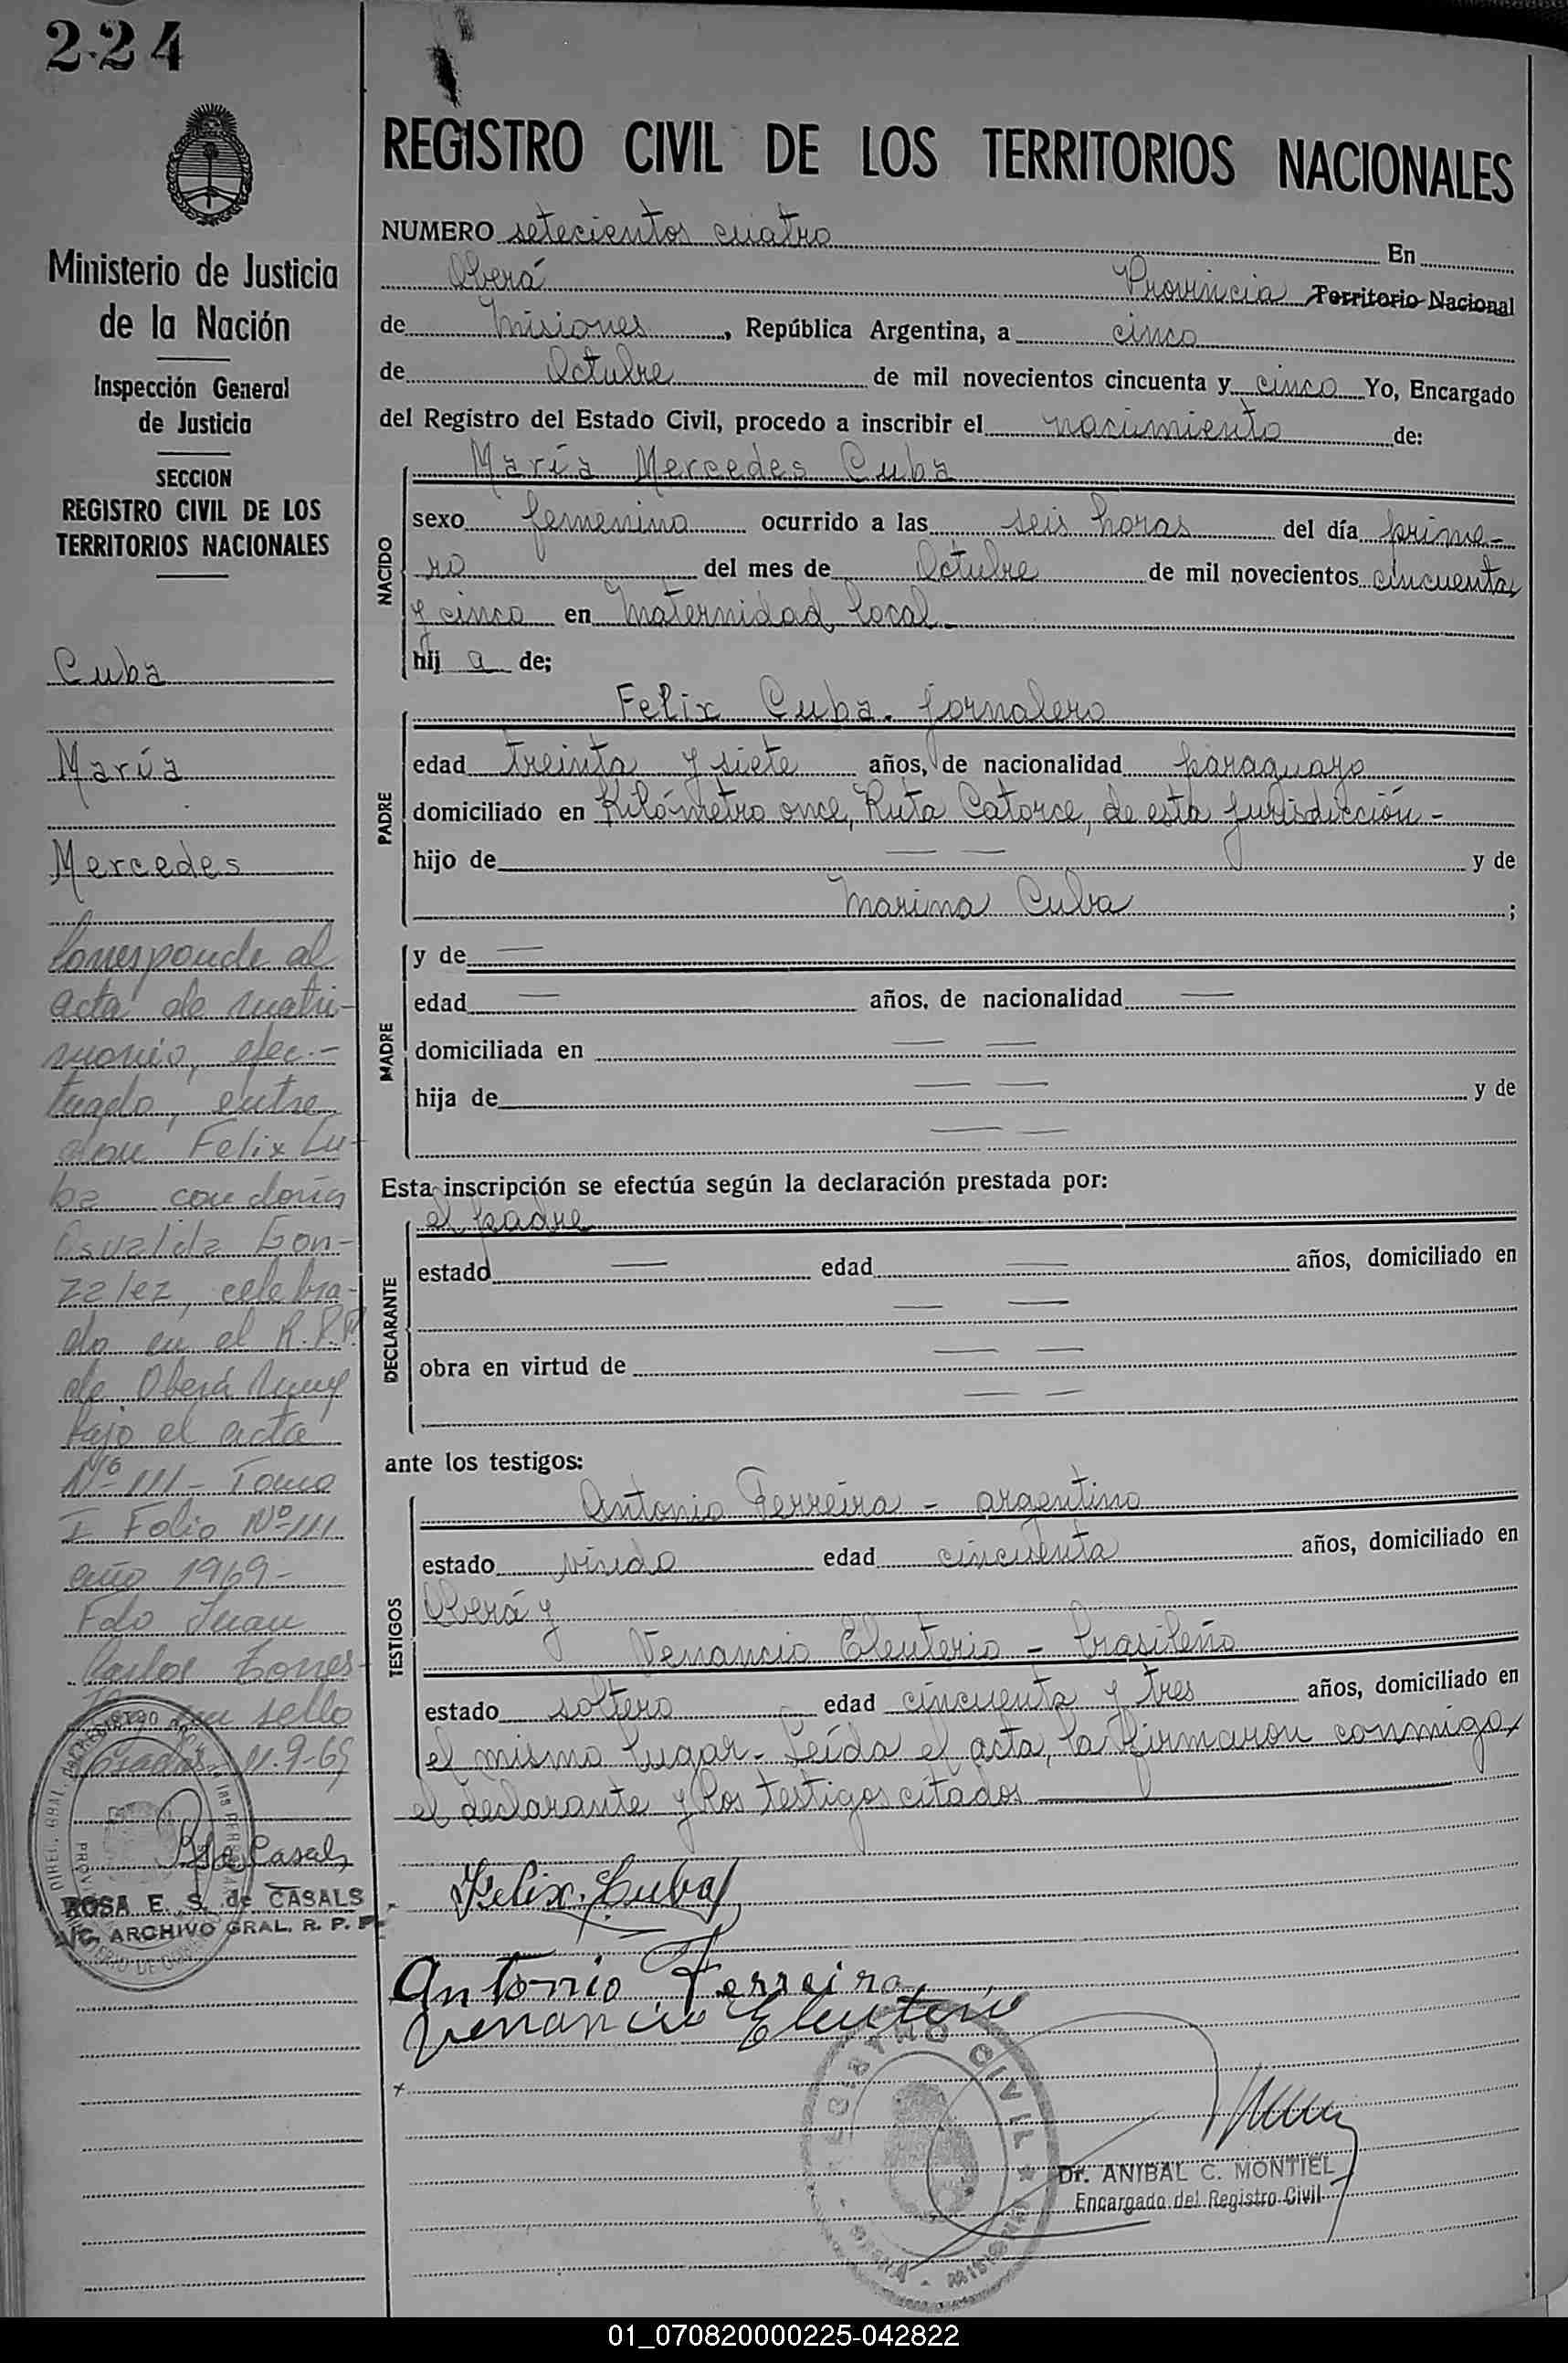 224
REGISTRO CIVIL DE LOS TERRITORIOS NACIONALES
Ministerio de Justicia
de la Nación
Inspección General
de Justicia
SECCION
REGISTRO CIVIL DE LOS
TERRITORIOS NACIONALES
Cuba
María
Mercedes
Corresponde al
acta de matri-
monio, efec-
tuado, entre
don Felix Cu-
ba con doña
Osvalda Gon-
zalez, celebra-
do en el R.P.P.
de Oberá
bajo el acta
Nº 111 - Tomo
I Folio Nº 111
año 1969 -
Fdo Juan
Carlos Torres
sello
Posadas, 11-9-69
ROSA E. S. de CASALS
ARCHIVO GRAL. R. P. P.
NUMERO setecientos cuatro En
Oberá Provincia Territorio Nacional
de Misiones, República Argentina, a cinco
de Octubre de mil novecientos cincuenta y cinco Yo, Encargado
del Registro del Estado Civil, procedo a inscribir el nacimiento de:
María Mercedes Cuba
NACIDO
sexo femenino ocurrido a las seis horas del día prime-
ro del mes de Octubre de mil novecientos cincuenta
y cinco en Maternidad local -
hij a de;
Felix Cuba. jornalero
PADRE
edad treinta y siete años, de nacionalidad paraguayo
domiciliado en Kilómetro once, Ruta Catorce, de esta jurisdicción -
hijo de — — y de
Marina Cuba ;
MADRE
y de —
edad — años, de nacionalidad —
domiciliada en — —
hija de — — y de
— —
Esta inscripción se efectúa según la declaración prestada por:
el padre
DECLARANTE
estado — edad — años, domiciliado en
— —
obra en virtud de — —
— —
ante los testigos:
Antonio Ferreira - argentino
TESTIGOS
estado viudo edad cincuenta años, domiciliado en
Oberá y
Venancio Eleuterio - brasileño
estado soltero edad cincuenta y tres años, domiciliado en
el mismo lugar - Leída el acta, la firmaron conmigo,
el declarante y los testigos citados
Felix Cuba
Antonio Ferreira
Venancio Eleuterio
REGISTRO CIVIL
Dr. ANIBAL C. MONTIEL
Encargado del Registro Civil
01_070820000225-042822